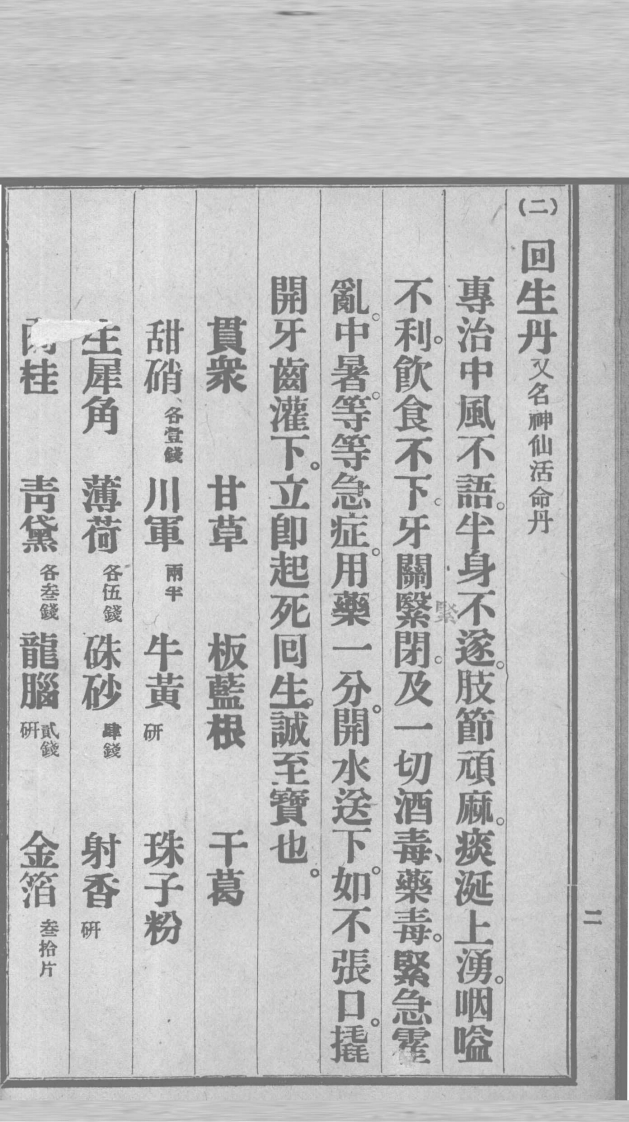 (二) 回生丹 又名神仙活命丹
專治中風不語。半身不遂。肢節頑麻。痰涎上湧。咽嗌
不利。飲食不下。牙關緊閉。及一切酒毒、藥毒。緊急霍
緊
亂。中暑。等等急症。用藥一分。開水送下。如不張口。撬
開牙齒灌下。立卽起死回生。誠至寶也。
貫衆 甘草 板藍根 干葛
甜硝 各壹錢 川軍 兩半 牛黃 研 珠子粉
生犀角 薄荷 各伍錢 硃砂 肆錢 射香 研
桂 靑黛 各叁錢 龍腦 貳錢研 金箔 叁拾片
二